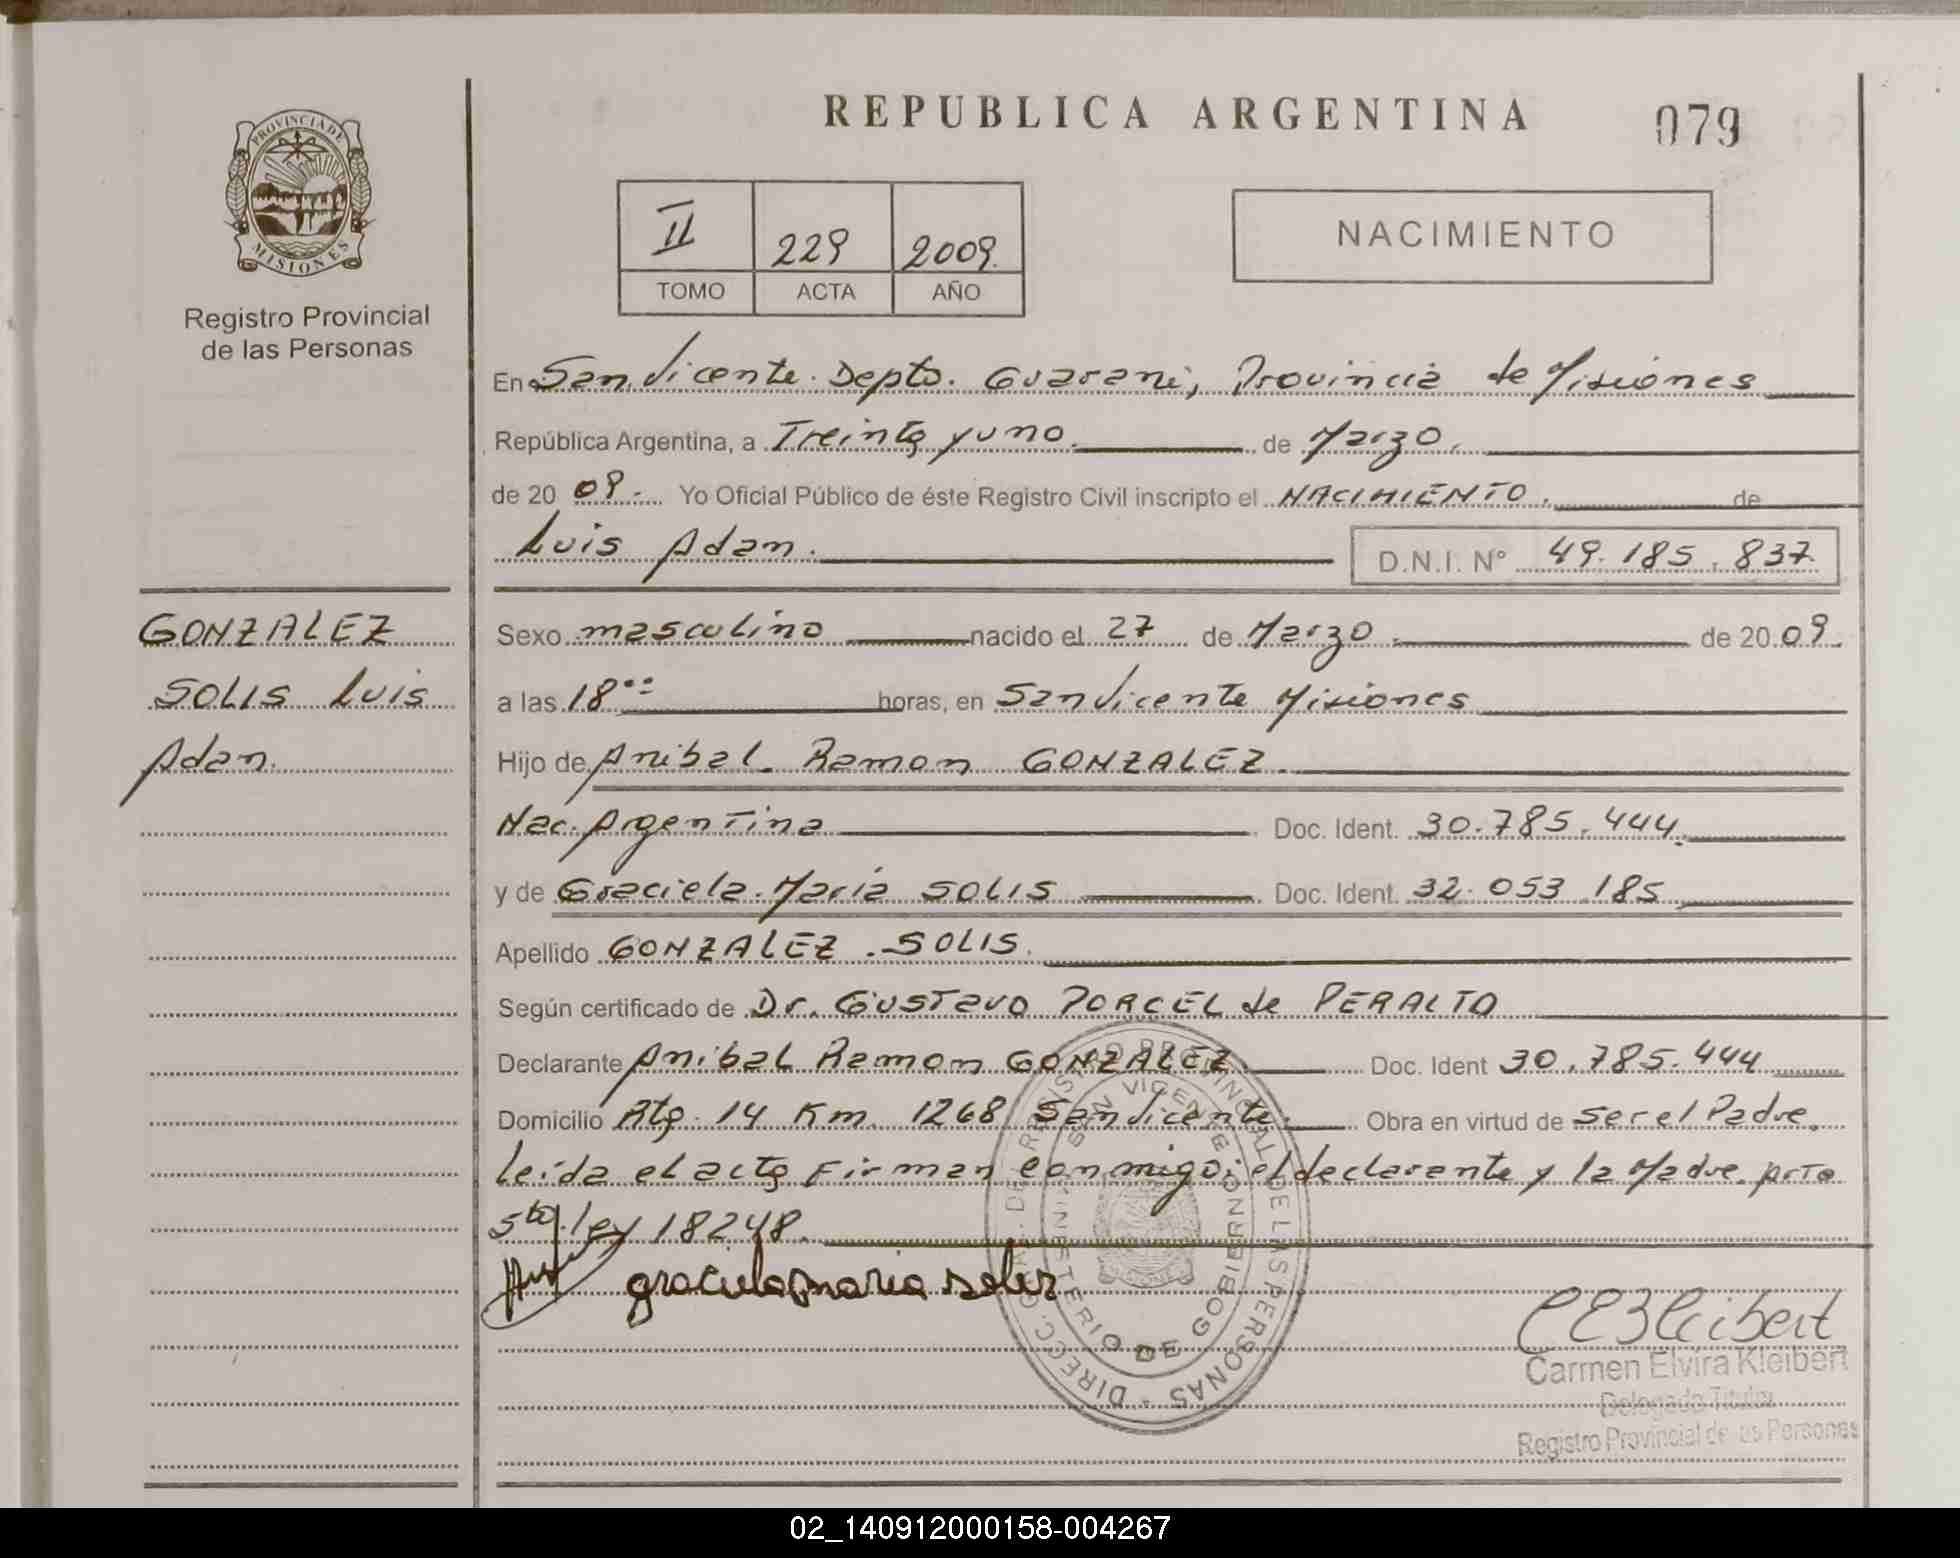 REPUBLICA ARGENTINA
079
PROVINCIA DE
MISIONES
Registro Provincial
de las Personas
II 229 2009.
TOMO ACTA AÑO
NACIMIENTO
En San Vicente. Depto. Guarani, Provincia de Misiones
República Argentina, a Treinta y uno. de Marzo.
de 20 09.- Yo Oficial Público de éste Registro Civil inscripto el NACIMIENTO. de
Luis Adan. D.N.I. Nº 49.185.837
GONZALEZ
SOLIS Luis
Adan.
Sexo masculino nacido el 27 de Marzo. de 20 09.
a las 18.00 horas, en San Vicente Misiones
Hijo de Anibal Ramon GONZALEZ.
Nac. Argentina Doc. Ident. 30.785.444.
y de Graciela Maria SOLIS Doc. Ident. 32.053.185
Apellido GONZALEZ SOLIS.
Según certificado de Dr. Gustavo PORCEL de PERALTO
Declarante Anibal Ramon GONZALEZ Doc. Ident 30.785.444
Domicilio Rta. 14 Km. 1268 San Vicente. Obra en virtud de ser el Padre.
Leida el acta Firman conmigo: el declarante y la Madre. Arto
5to. ley 18248.
graciela maria solis
DIRECC. GRAL. DE REGISTRO PROVINCIAL DE LAS PERSONAS
SAN VICENTE
MINISTERIO DE GOBIERNO
CEKleibert
Carmen Elvira Kleibert
Delegada Titular
Registro Provincial de las Personas
02_140912000158-004267